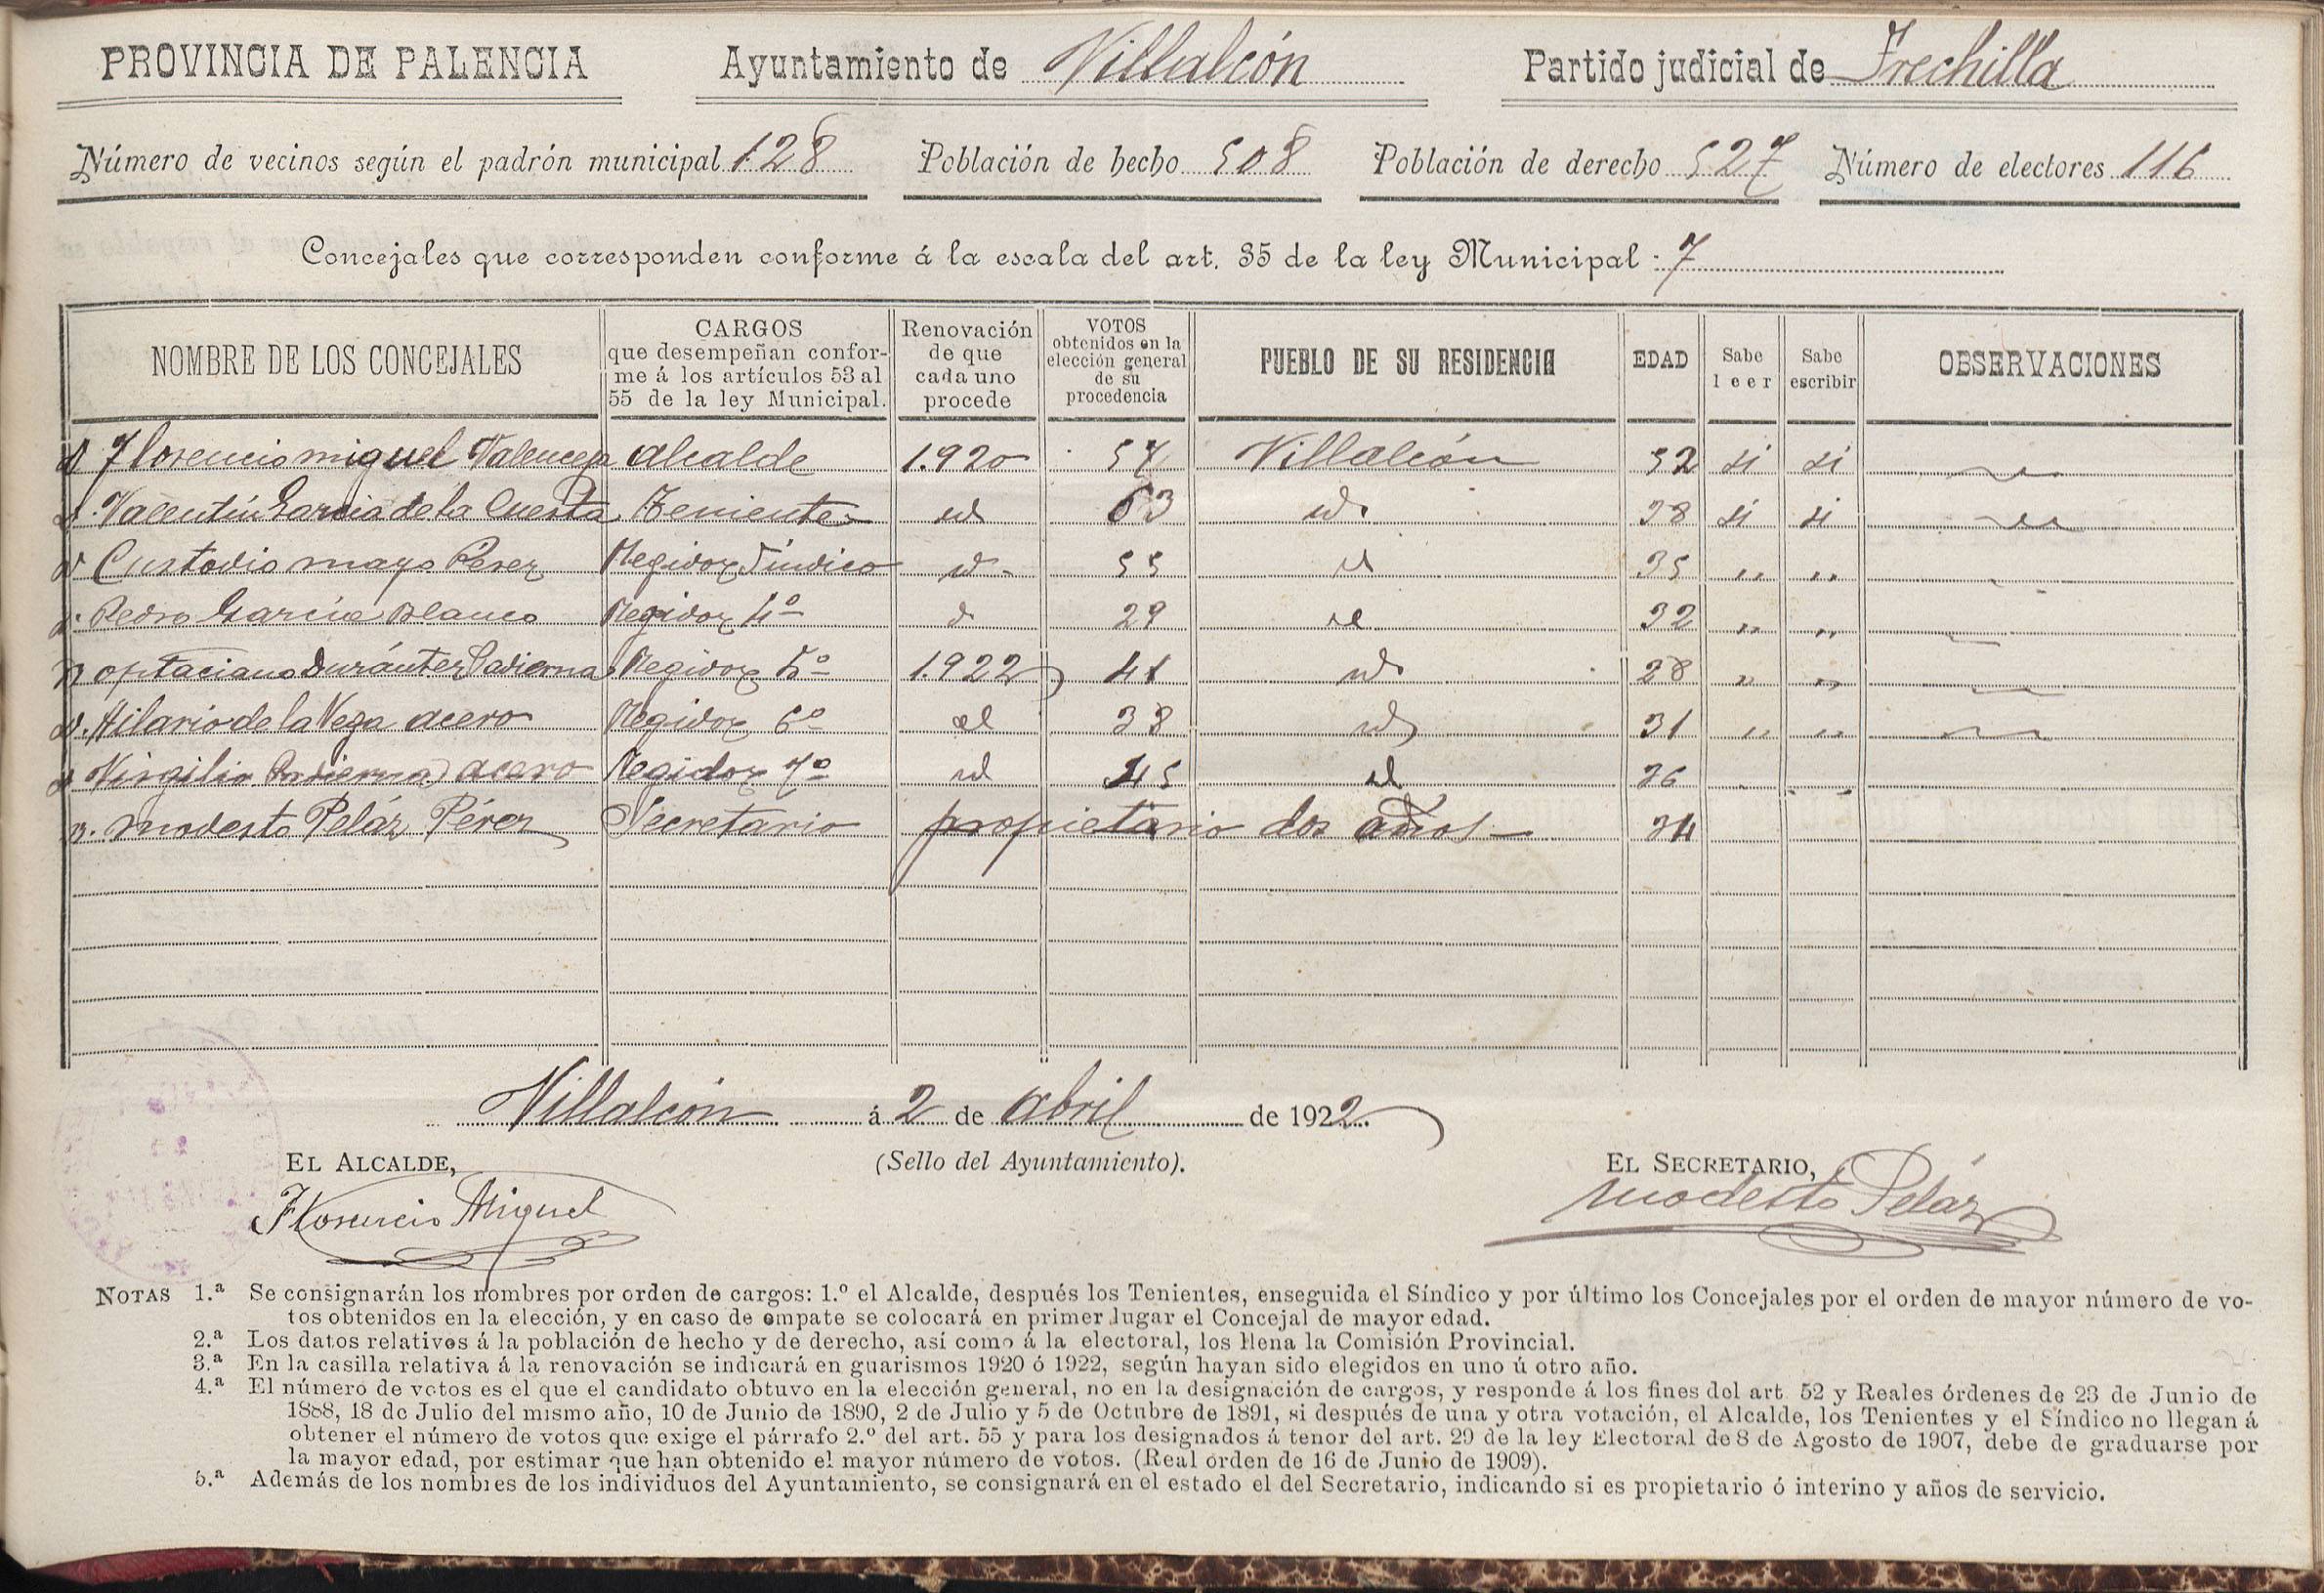 PROVINCIA DE PALENCIA Ayuntamiento de Villalcón Partido judicial de Frechilla
Número de vecinos según el padrón municipal 128 Población de hecho 508 Población de derecho 527 Número de electores 116
Concejales que corresponden conforme á la escala del art. 35 de la ley Municipal: 7
NOMBRE DE LOS CONCEJALES
CARGOS
que desempeñan confor-
me á los artículos 53 al
55 de la ley Municipal.
Renovación
de que
cada uno
procede
VOTOS
obtenidos en la
elección general
de su
procedencia
PUEBLO DE SU RESIDENCIA
EDAD
Sabe
leer
Sabe
escribir
OBSERVACIONES
D Florencio Miguel Valenceja Alcalde 1.920 57 Villalcón 52 si si
D. Valentín Garcia de la Cuesta Teniente id 63 id. 38 si si
D Custodio Mayo Pérez Regidor Síndico id 55 id 35 " "
D. Pedro García Blanco Regidor 4º id 29 id 32 " "
D Optaciano Durántez Padierna Regidor 5º 1.922 41 id 28 " "
D. Hilario de la Vega Acero Regidor 6º id 38 id 31 " "
D Virgilio Padierna Acero Regidor 7º id 45 id 36 " "
D. Modesto Peláz Pérez Secretario propietario dos años 34
Villalcón á 2 de Abril de 1922
EL ALCALDE, (Sello del Ayuntamiento). EL SECRETARIO,
Florencio Miguel Modesto Peláz
NOTAS 1.ª Se consignarán los nombres por orden de cargos: 1.º el Alcalde, después los Tenientes, enseguida el Síndico y por último los Concejales por el orden de mayor número de vo-
tos obtenidos en la elección, y en caso de empate se colocará en primer lugar el Concejal de mayor edad.
2.ª Los datos relativos á la población de hecho y de derecho, así como á la electoral, los llena la Comisión Provincial.
3.ª En la casilla relativa á la renovación se indicará en guarismos 1920 ó 1922, según hayan sido elegidos en uno ú otro año.
4.ª El número de votos es el que el candidato obtuvo en la elección general, no en la designación de cargos, y responde á los fines del art. 52 y Reales órdenes de 23 de Junio de
1888, 18 de Julio del mismo año, 10 de Junio de 1890, 2 de Julio y 5 de Octubre de 1891, si después de una y otra votación, el Alcalde, los Tenientes y el Síndico no llegan á
obtener el número de votos que exige el párrafo 2.º del art. 55 y para los designados á tenor del art. 29 de la ley Electoral de 8 de Agosto de 1907, debe de graduarse por
la mayor edad, por estimar que han obtenido el mayor número de votos. (Real orden de 16 de Junio de 1909).
5.ª Además de los nombres de los individuos del Ayuntamiento, se consignará en el estado el del Secretario, indicando si es propietario ó interino y años de servicio.